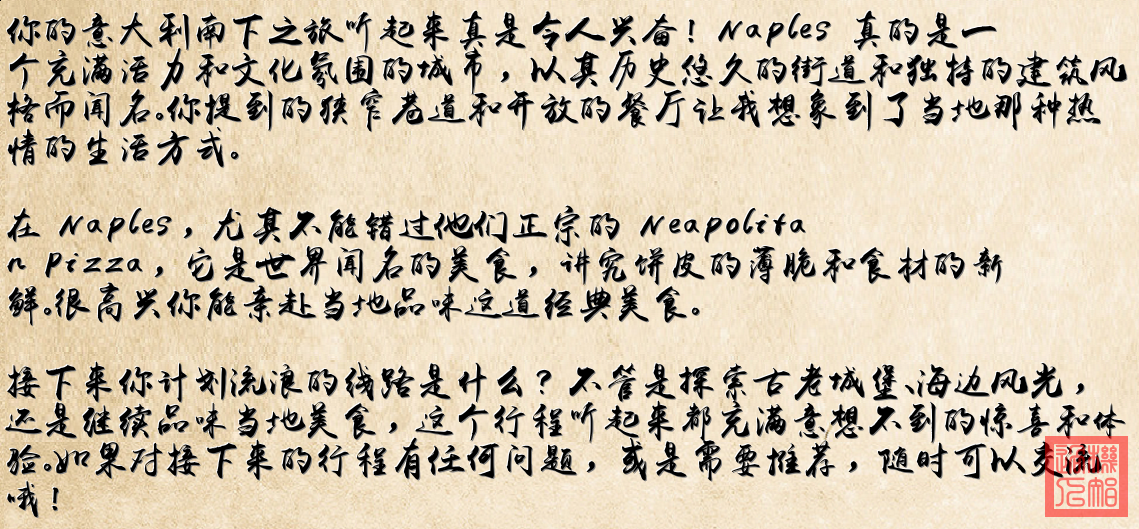 你的意大利南下之旅听起来真是令人兴奋！Naples 真的是一
个充满活力和文化氛围的城市，以其历史悠久的街道和独特的建筑风
格而闻名。你提到的狭窄巷道和开放的餐厅让我想象到了当地那种热
情的生活方式。
在 Naples，尤其不能错过他们正宗的 Neapolita
n Pizza，它是世界闻名的美食，讲究饼皮的薄脆和食材的新
鲜。很高兴你能亲赴当地品味这道经典美食。
接下来你计划流浪的线路是什么？不管是探索古老城堡、海边风光，
还是继续品味当地美食，这个行程听起来都充满意想不到的惊喜和体
验。如果对接下来的行程有任何问题，或是需要推荐，随时可以交流
哦！